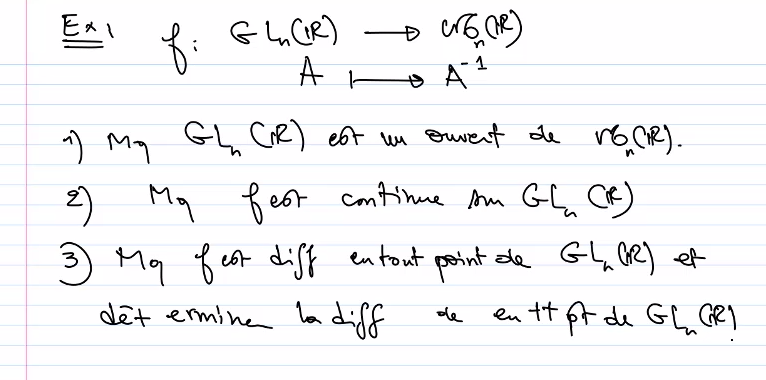 Ex1 f: GLn(ℝ) → Mn(ℝ)
A ↦ A⁻¹
1) Mq GLn(ℝ) est un ouvert de Mn(ℝ).
2) Mq f est continue sur GLn(ℝ)
3) Mq f est diff en tout point de GLn(ℝ) et
déterminer la diff de en tt pt de GLn(ℝ).